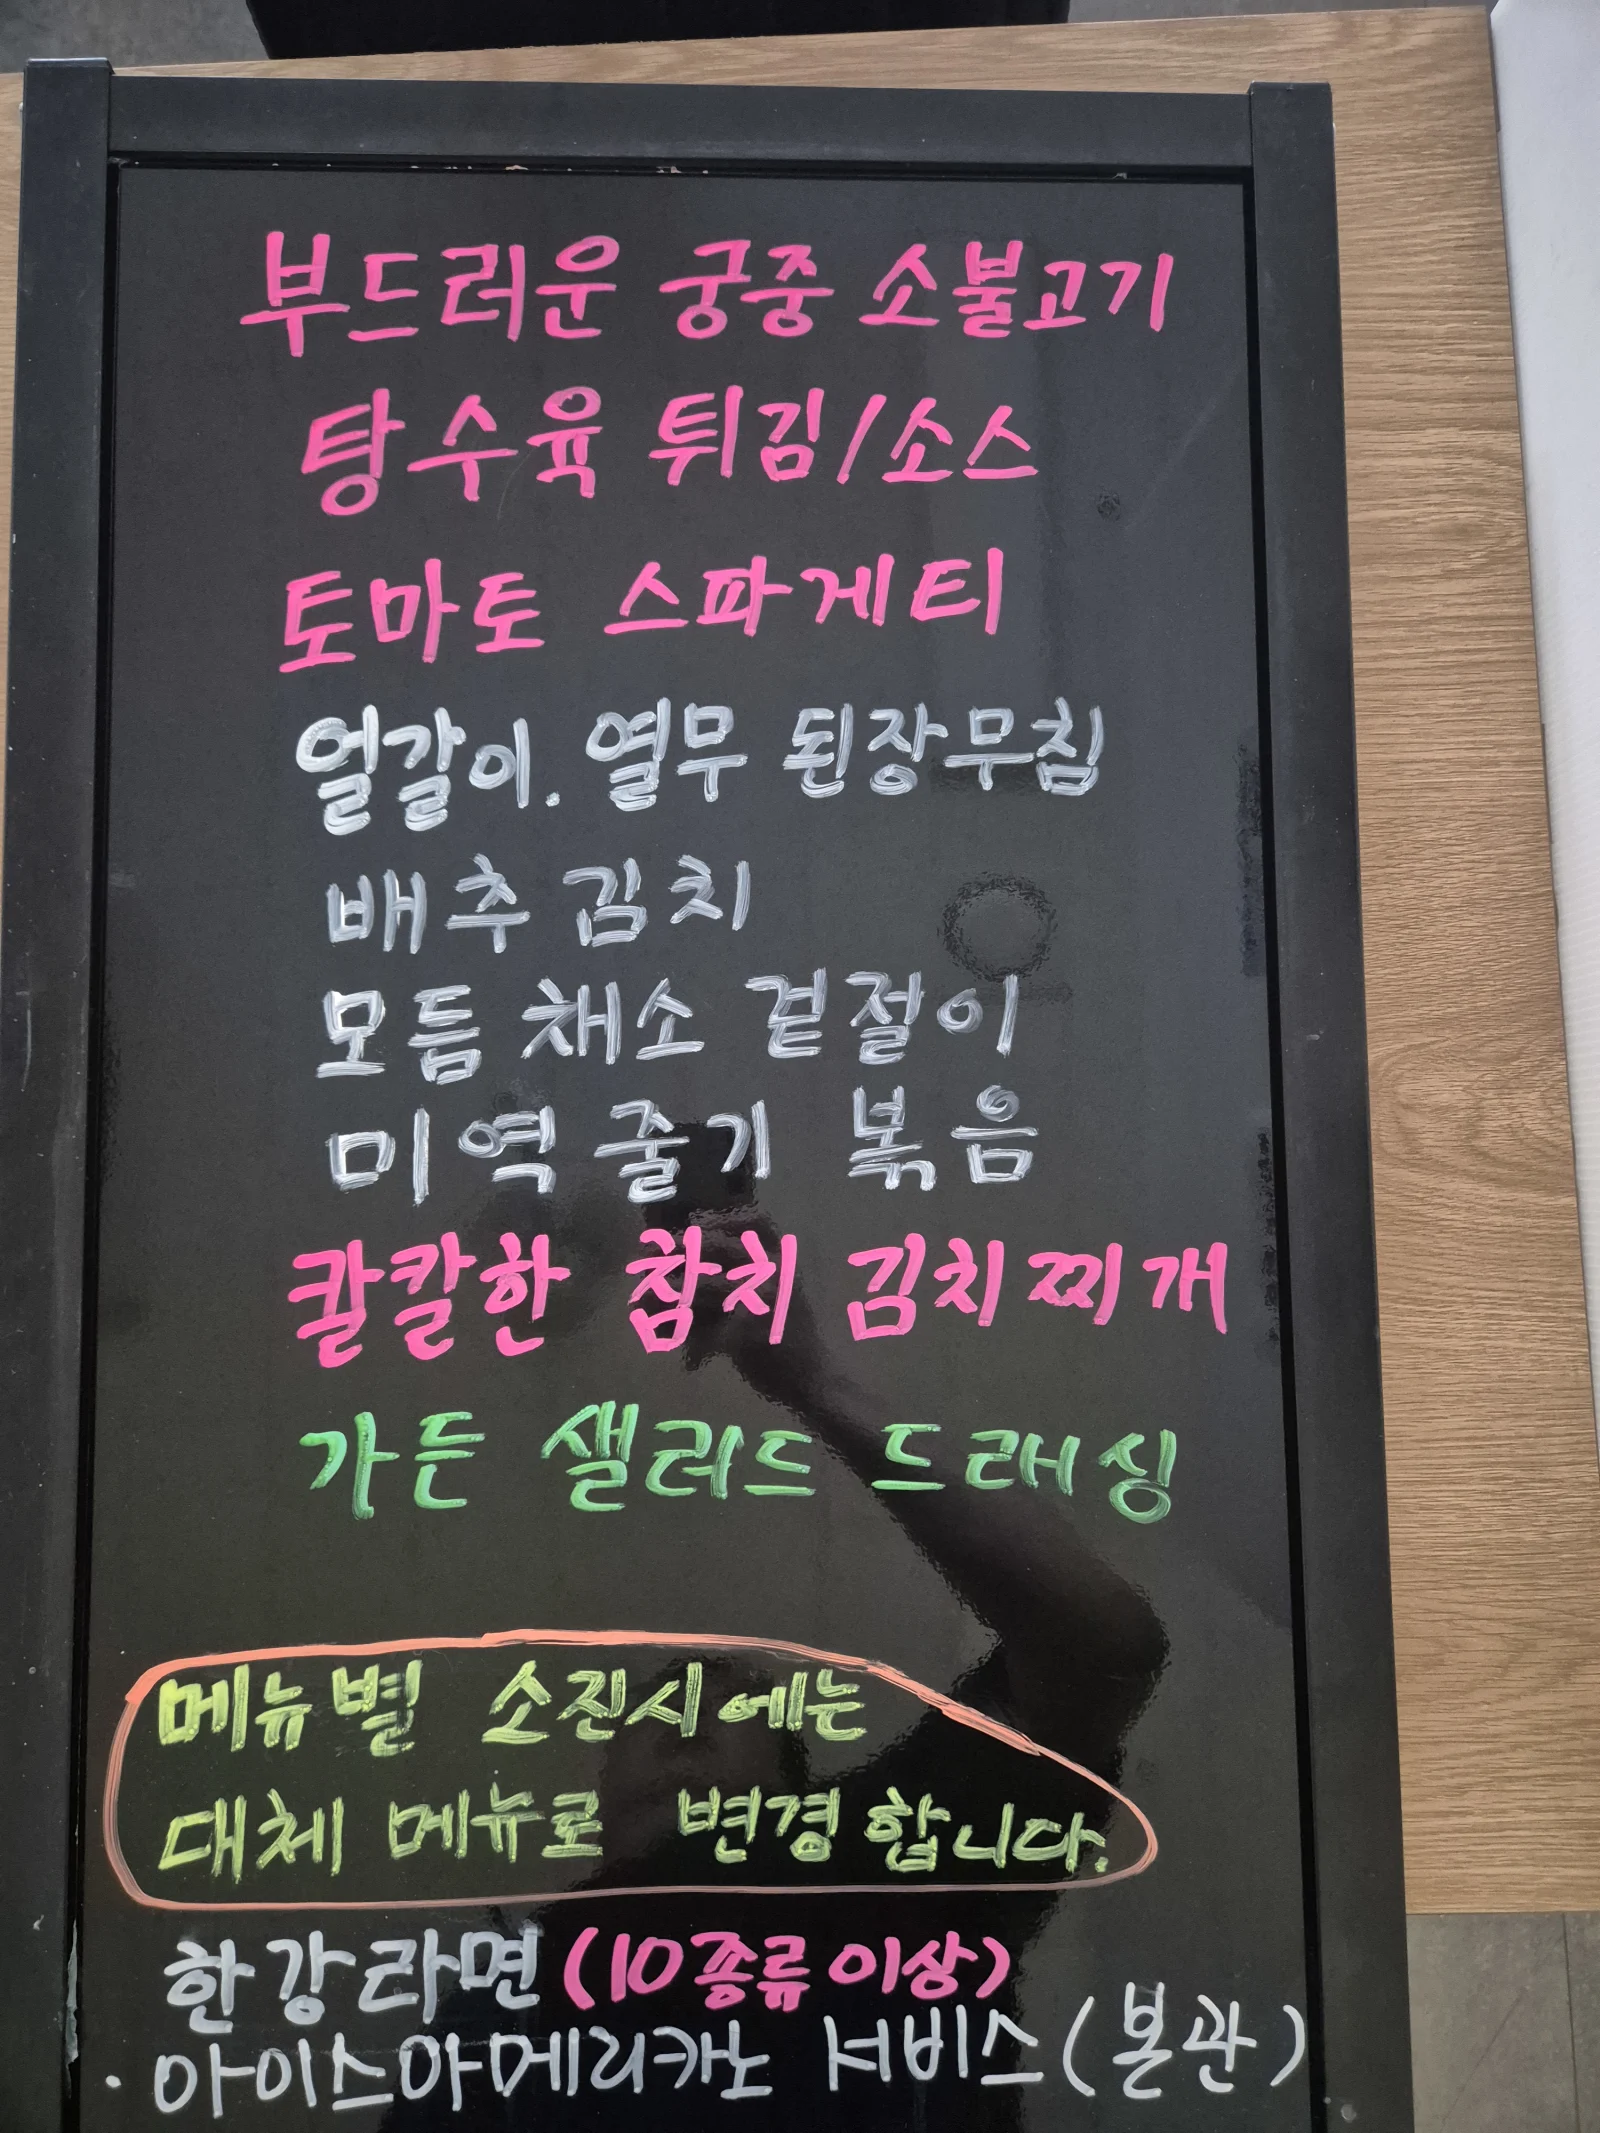 부드러운 궁중 소불고기
탕수육 튀김/소스
토마토 스파게티
얼갈이. 열무 된장무침
배추 김치
모듬 채소 겉절이
미역 줄기 볶음
칼칼한 참치 김치 찌개
가든 샐러드 드래싱
메뉴별 소진시에는
대체 메뉴로 변경합니다.
한강라면 (10종류이상)
· 아이스아메리카노 서비스 (본관)